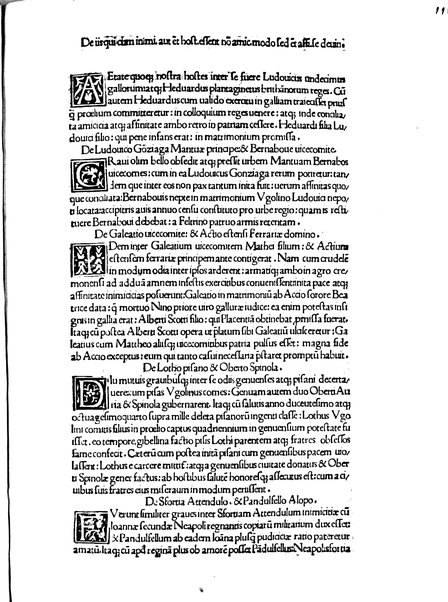 De iis qui cum inimi. aut et host. essent nō amic. modo sed et affi. se deuin.
AEtate quoq; nostra hostes inter se fuere Ludouicus undecimus
gallorum atq; Heduardus plantagineus brithānorum reges. Cū
autem Heduardus cum ualido exercitu in galliam traiecisset prius
q̄ proelium committeretur: in colloquium reges uenere: atq; inde concilia/
ta amicicia atq; affinitate ambo retro in patriam cessere. Heduardi filia Lu/
douici filio: qui pene infans erat: in matrimonium promissa.
De Ludouico Gōziaga Mantuæ principe: & Bernaboue uicecomite.
GRaui olim bello obsedit atq; pressit urbem Mantuam Bernabos
uicecomes: cum in ea Ludouicus Gonziaga rerum potiretur: tan/
dem que inter eos non pax tantum inita fuit: uerum affinitas quo/
que conciliata: Bernabouis nepte in matrimonium Vgolino Ludouici nepo/
ti locata: acceptisq; auis annuo censu constituto pro urbe regio: quam is resti/
tuere Bernaboui debebat: a Feltrino patruo armis retentam.
De Galeatio uicecomite: & Actio estensi Ferrariæ domino.
IDem inter Galeatium uicecomitem Mathei filium: & Actium
estensem ferrariæ principem ante contigerat. Nam cum crudelē
in modum odia inter ipsos arderent: armatiq; ambo in agro cre/
monensi ad addud amnem infestis exercitibus conuenissent: inita pace atq;
affinitate inimicicias posuerunt: Galeatio in matrimoniū ab Accio sorore Bea
trice data: q̄ mortuo Nino priore uiro galluræ iudice: ea enim potestas insi
gnis in gallia erat: Alberti Scotti filio: qui Placentiā obtinebat, pmissa fuerat.
Itaq; cū postea Alberti Scotti opera ut platum sibi Galeatiū ulcisceretur: Ga
leatius cum Mattheo aliisq; uicecomitibus patria pulsus esset: magna fide
ab Accio exceptus: eum qui tanto casui necessaria pstaret promptū habuit.
De Lotho pisano & Oberto Spinola.
DIu mutuis grauibusq; inter se odiis genuenses atq; pisani decerta/
uere: cum pisas Vgolinus comes: Genuam autem duo Oberti Au
ria & Spinola gubernarent. Itaq; cū salutis anno ducentesimo atq;
octuagesimoquarto supra mille deleta pisanorū ingenti classe: Lothus Vgo
lini comitis filius in proelio captus quadriennium in genuensium potestate fu
isset. eo tempore, gibellina factio pisis Lothi parentem atq; fratres obsessos
fame confecit. Cæterū cum postea inita pisani cum genuensibus pacem uio/
lassent: Lothus e carcere missus: atq; a genuensibus ciuitate donatus & Ober
ti Spinolæ gener factus: ab hostibus salutē honoresq; assecutus est: cum a ci/
uibus suis fratres eius miseram in modum periissent.
De Sfortia Attendulo, & Pandulfello Alopo.
FVerunt similiter graues inter Sfortiam Attendulum inimiciciæ cū
Ioannæ secundæ Neapoli regnantis copiarū militarium dux esset:
& Pandulfellum ab eadem Ioāna plusq; pudiciciæ ratio pateretur
amatū. Itaq; cū apd̄ reginā plus ob amorē posset Pādulfellus: Neapoli sfortia